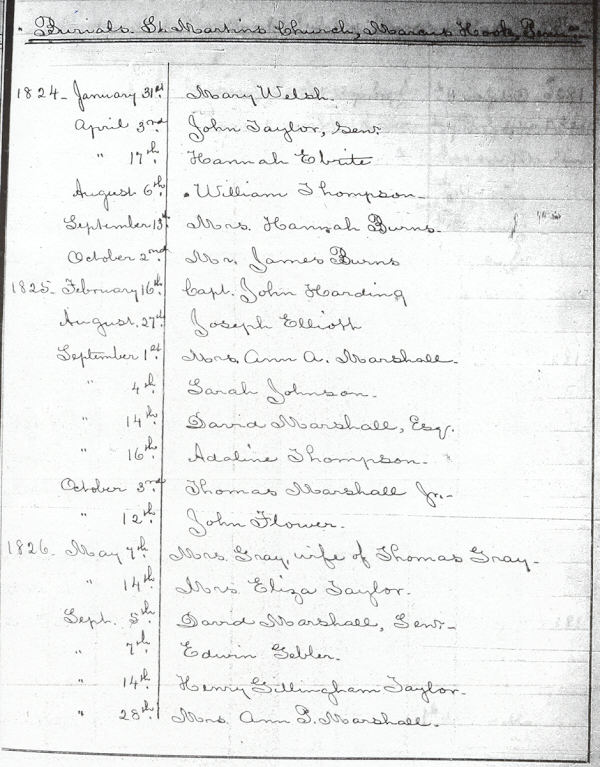 Burials. St. Martins Church, Marcus Hook, Penn.
1824 - January 31st. Mary Welsh.
April 3rd John Taylor, Senr.
" 17th. Hannah Ebrite
August 6th. William Thompson -
September 13th. Mrs. Hannah Burns -
October 2nd Mr. James Burns
1825 - February 16th. Capt. John Harding
August. 27th. Joseph Elliott
September 1st. Mrs. Ann A. Marshall -
" 4th. Sarah Johnson.
" 14th. David Marshall, Esq.
" 16th. Adaline Thompson -
October 3rd Thomas Marshall Jr. -
" 12th. John Flower.
1826. May 7th. Mrs. Gray, wife of Thomas Gray -
" 14th. Mrs. Eliza Taylor.
Sept. 5th. David Marshall, Senr. -
" 7th. Edwin Gebler.
" 14th. Henry Gillingham Taylor.
" 28th. Mrs. Ann Marshall.